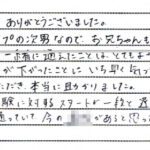 ありがとうございました。
プの次男なので、お兄ちゃんも
一緒に通えたことは、とてもよ
が下がったことにいち早く気づ
ただき、本当に助かりました。
験に対するスタートが一段と遅
通っていて今の があると思っ